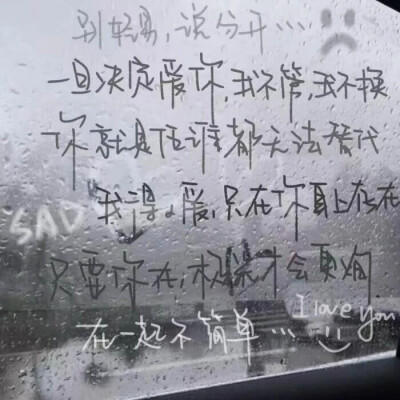 别轻易,说分开...
一旦决定爱你,我不管,我不换
你就是任谁都无法替代
SAD 我得爱,只在你身上存在
只要你在,极端才会更绚
I love you
在一起不简单...